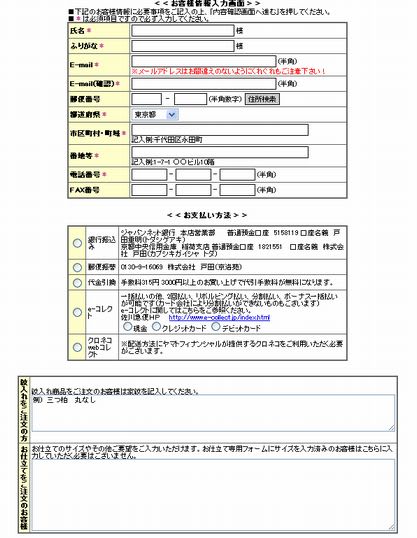 ＜＜お客様情報入力画面＞＞
■下記のお客様情報に必要事項をご記入の上、「内容確認画面へ進む」を押してください。
■＊は必須項目ですので必ず入力してください。
氏名＊ 様
ふりがな＊ 様
E-mail＊ (半角)
※メールアドレスはお間違えのないようにくれぐれもご注意下さい！
E-mail(確認)＊ (半角)
郵便番号 - (半角数字) 住所検索
都道府県＊ 東京都
市区町村・町域＊
記入例:千代田区永田町
番地等＊
記入例:1-7-1 〇〇ビル10階
電話番号＊ - - (半角)
FAX番号 - - (半角)
＜＜お支払い方法＞＞
銀行振込み
ジャパンネット銀行 本店営業部 普通預金口座 5158119 口座名義 戸
田重明(トダシゲアキ)
京都中央信用金庫 稲荷支店 普通預金口座 1821551 口座名義 株式会
社 戸田(カブシキガイシャ トダ)
郵便振替 0130-9-16069 株式会社 戸田(京洛苑)
代金引換 手数料315円 3000円以上のお買い上げで代引手数料が無料になります。
e-コレクト
一括払いの他、2回払い、リボルビング払い、分割払い、ボーナス一括払い
が可能です(カード会社により分割払いができないものもございます)
e-コレクトに関してはこちらをご参照ください。
佐川急便HP http://www.e-collect.jp/index.html
現金 クレジットカード デビットカード
クロネコwebコレクト
※配送方法にヤマトフィナンシャルが提供するクロネコをご利用いただく必要
がございます。
紋入れをご注文の方
紋入れ商品をご注文のお客様は家紋を記入してください。
例）三つ柏 丸なし
お仕立てをご注文のお客様
お仕立てのサイズやその他ご要望をご入力いただけます。お仕立て専用フォームにサイズを入力済みのお客様はこちらに入
力していただく必要はございません。